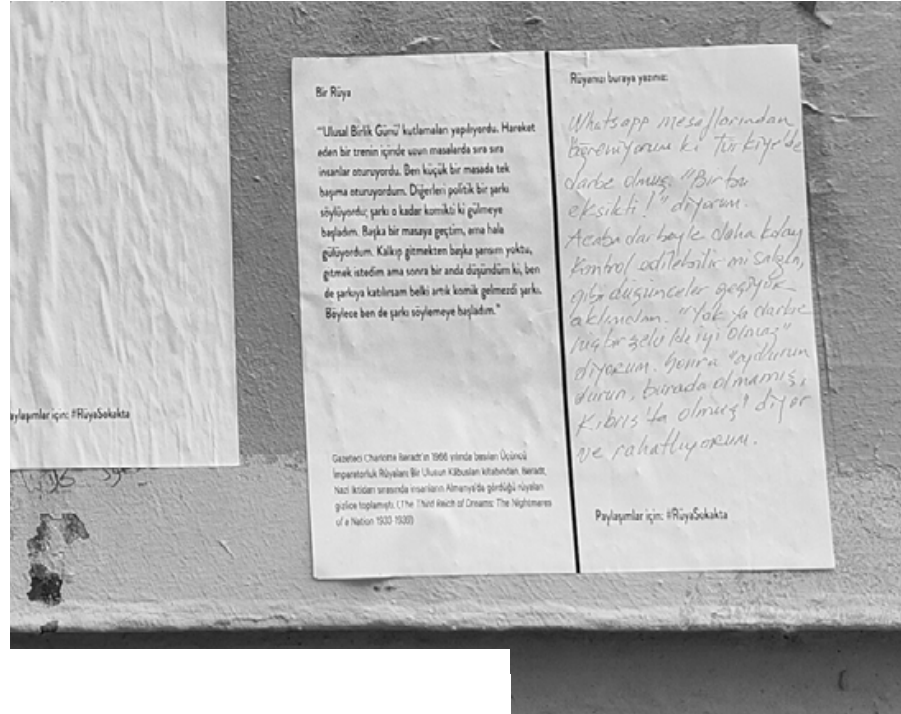 Bir Rüya
"'Ulusal Birlik Günü' kutlamaları yapılıyordu. Hareket
eden bir trenin içinde uzun masalarda sıra sıra
insanlar oturuyordu. Ben küçük bir masada tek
başıma oturuyordum. Diğerleri politik bir şarkı
söylüyordu; şarkı o kadar komikti ki gülmeye
başladım. Başka bir masaya geçtim, ama hala
gülüyordum. Kalkıp gitmekten başka şansım yoktu,
gitmek istedim ama sonra bir anda düşündüm ki, ben
de şarkıya katılırsam belki artık komik gelmezdi şarkı.
Böylece ben de şarkı söylemeye başladım."
Gazeteci Charlotte Beradt'ın 1966 yılında basılan Üçüncü
İmparatorluk Rüyaları: Bir Ulusun Kâbusları kitabından. Beradt,
Nazi iktidarı sırasında insanların Almanya'da gördüğü rüyaları
gizlice toplamıştı. (The Third Reich of Dreams: The Nightmares
of a Nation 1933-1939)
Rüyanızı buraya yazınız:
Whatsapp mesajlarından
öğreniyorum ki Türkiye'de
darbe olmuş. "Bir bu
eksikti!" diyorum.
Acaba darbeyle daha kolay
kontrol edilebilir mi salgın,
gibi düşünceler geçiyor
aklımdan. "Yok ya darbe
hiçbir şekilde iyi olmaz"
diyorum. Sonra "ay durun
durun, burada olmamış,
Kıbrıs'ta olmuş" diyor
ve rahatlıyorum.
Paylaşımlar için: #RüyaSokakta
aylaşımlar için: #RüyaSokakta